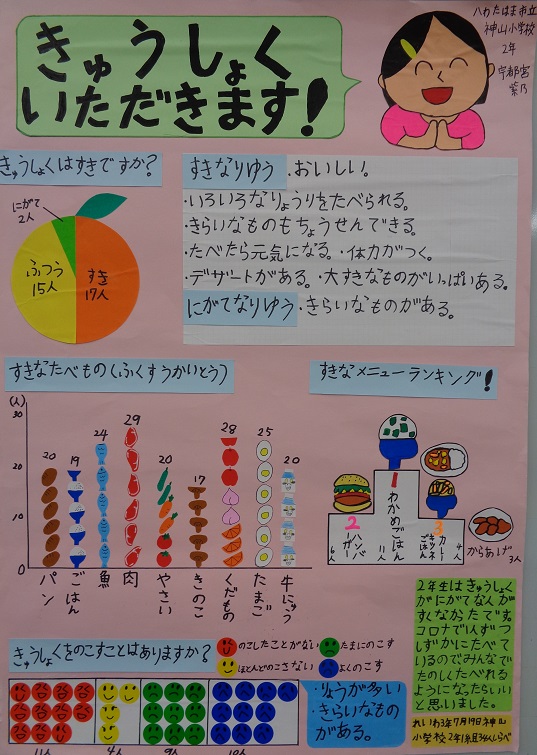 きゅうしょく
いただきます!
八わたはま市立
神山小学校
2年
宇都宮
紫乃
きゅうしょくはすきですか?
にがて
2人
ふつう
15人
すき
17人
すきなりゆう・おいしい。
・いろいろなりょうりをたべられる。
・きらいなものもちょうせんできる。
・たべたら元気になる。・体力がつく。
・デザートがある。・大すきなものがいっぱいある。
にがてなりゆう・きらいなものがある。
すきなたべもの(ふくすうかいとう)
(人)
30
20
10
0
20
19
24
29
20
17
28
25
20
パン
ごはん
魚
肉
やさい
きのこ
くだもの
たまご
牛にゅう
すきなメニューランキング!
1
わかめごはん
11人
2
ハンバーガー
6人
3
カレー
キツネごはん
4人
からあげ
3人
2年生はきゅうしょく
がにがてな人が
すくなかったです。
コロナで1人ずつ
しずかにたべて
いるのでみんなで
たのしくたべれる
ようになったらいい
と思いました。
れいわ3年7月19日神山
小学校2年1組34人しらべ
きゅうしょくをのこすことはありますか?
のこしたことがない
たまにのこす
ほとんどのこさない
よくのこす
11人
4人
9人
10人
・りょうが多い
・きらいなもの
がある。